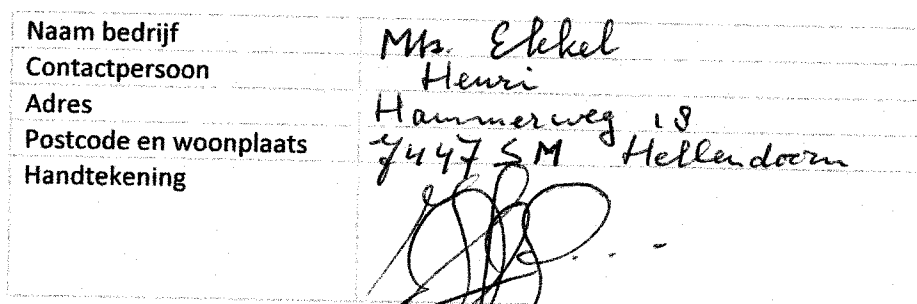 Naam bedrijf Mts. Ekkel
Contactpersoon Henri
Adres Hammerweg 18
Postcode en woonplaats 7447 SM Hellendoorn
Handtekening